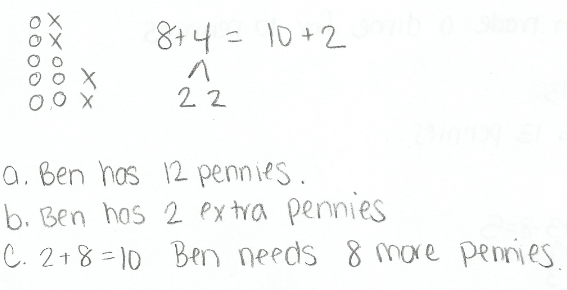 8+4 = 10+2
2 2
a. Ben has 12 pennies.
b. Ben has 2 extra pennies
C. 2+8=10 Ben needs 8 more pennies.